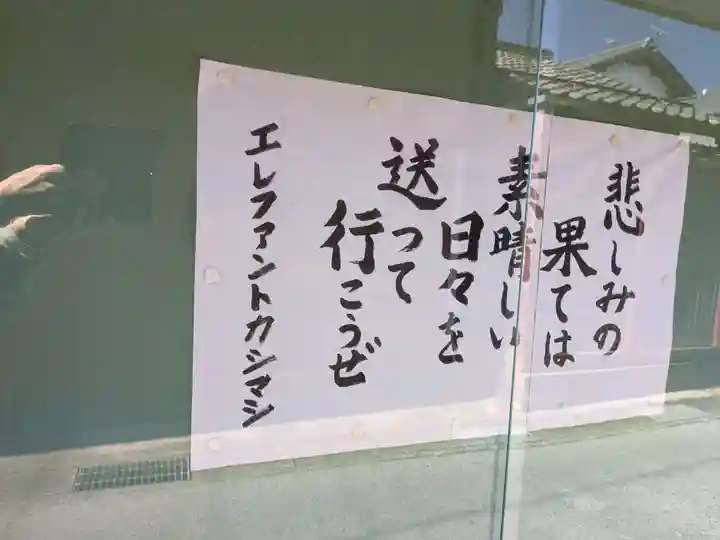 悲しみの
果ては
素晴しい
日々を
送って
行こうぜ
エレファントカシマシ